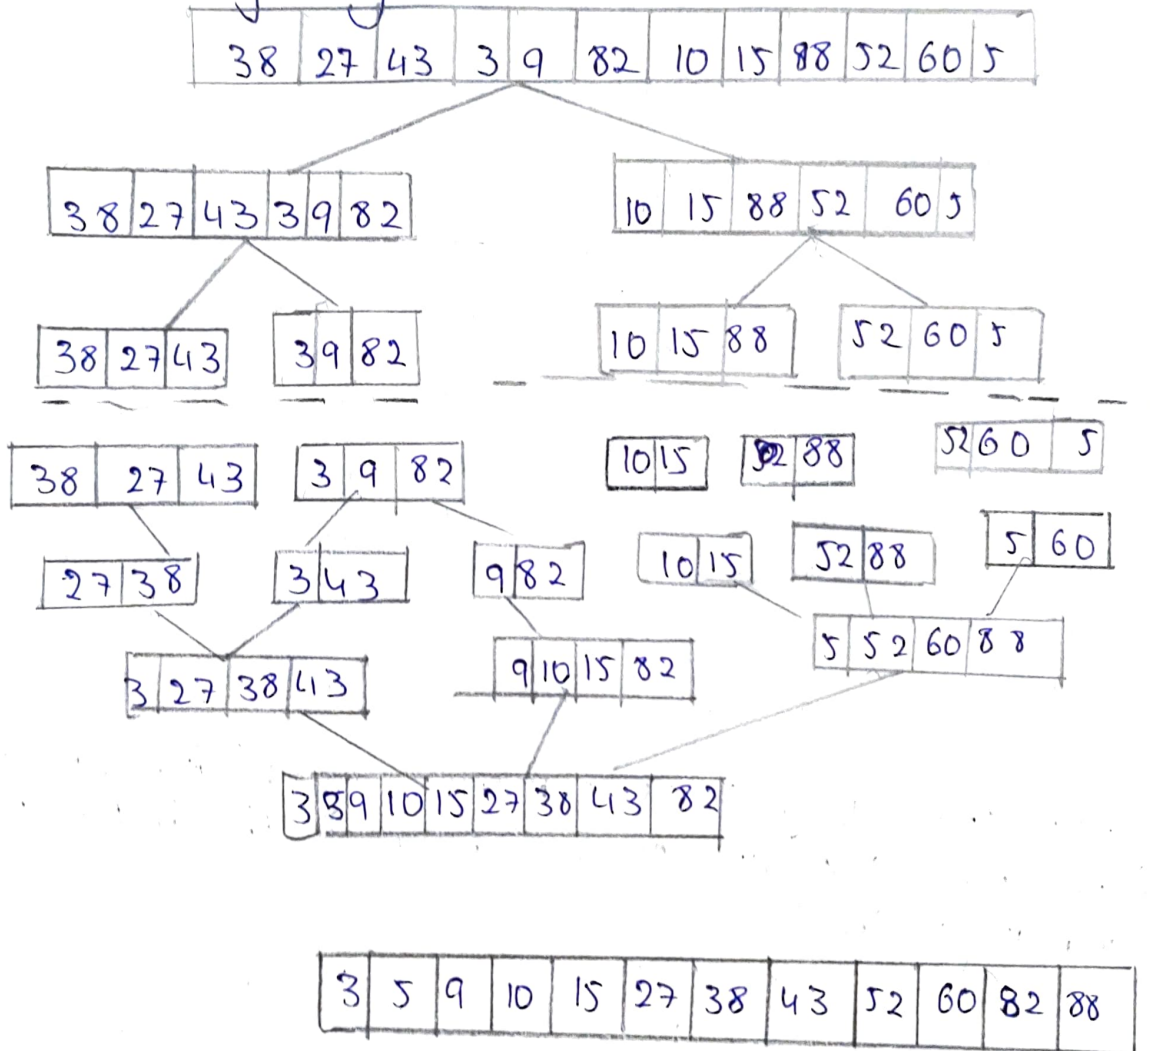 38 27 43 3 9 82 10 15 88 52 60 5
38 27 43 3 9 82 10 15 88 52 60 5
38 27 43 3 9 82 10 15 88 52 60 5
38 27 43 3 9 82 10 15 88 52 60 5
27 38 3 43 9 82 10 15 52 88 5 60
3 27 38 43 9 10 15 82 5 52 60 88
3 9 10 15 27 38 43 82
3 5 9 10 15 27 38 43 52 60 82 88